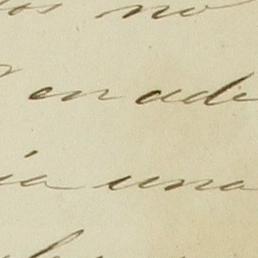 os no
en ade
ia una